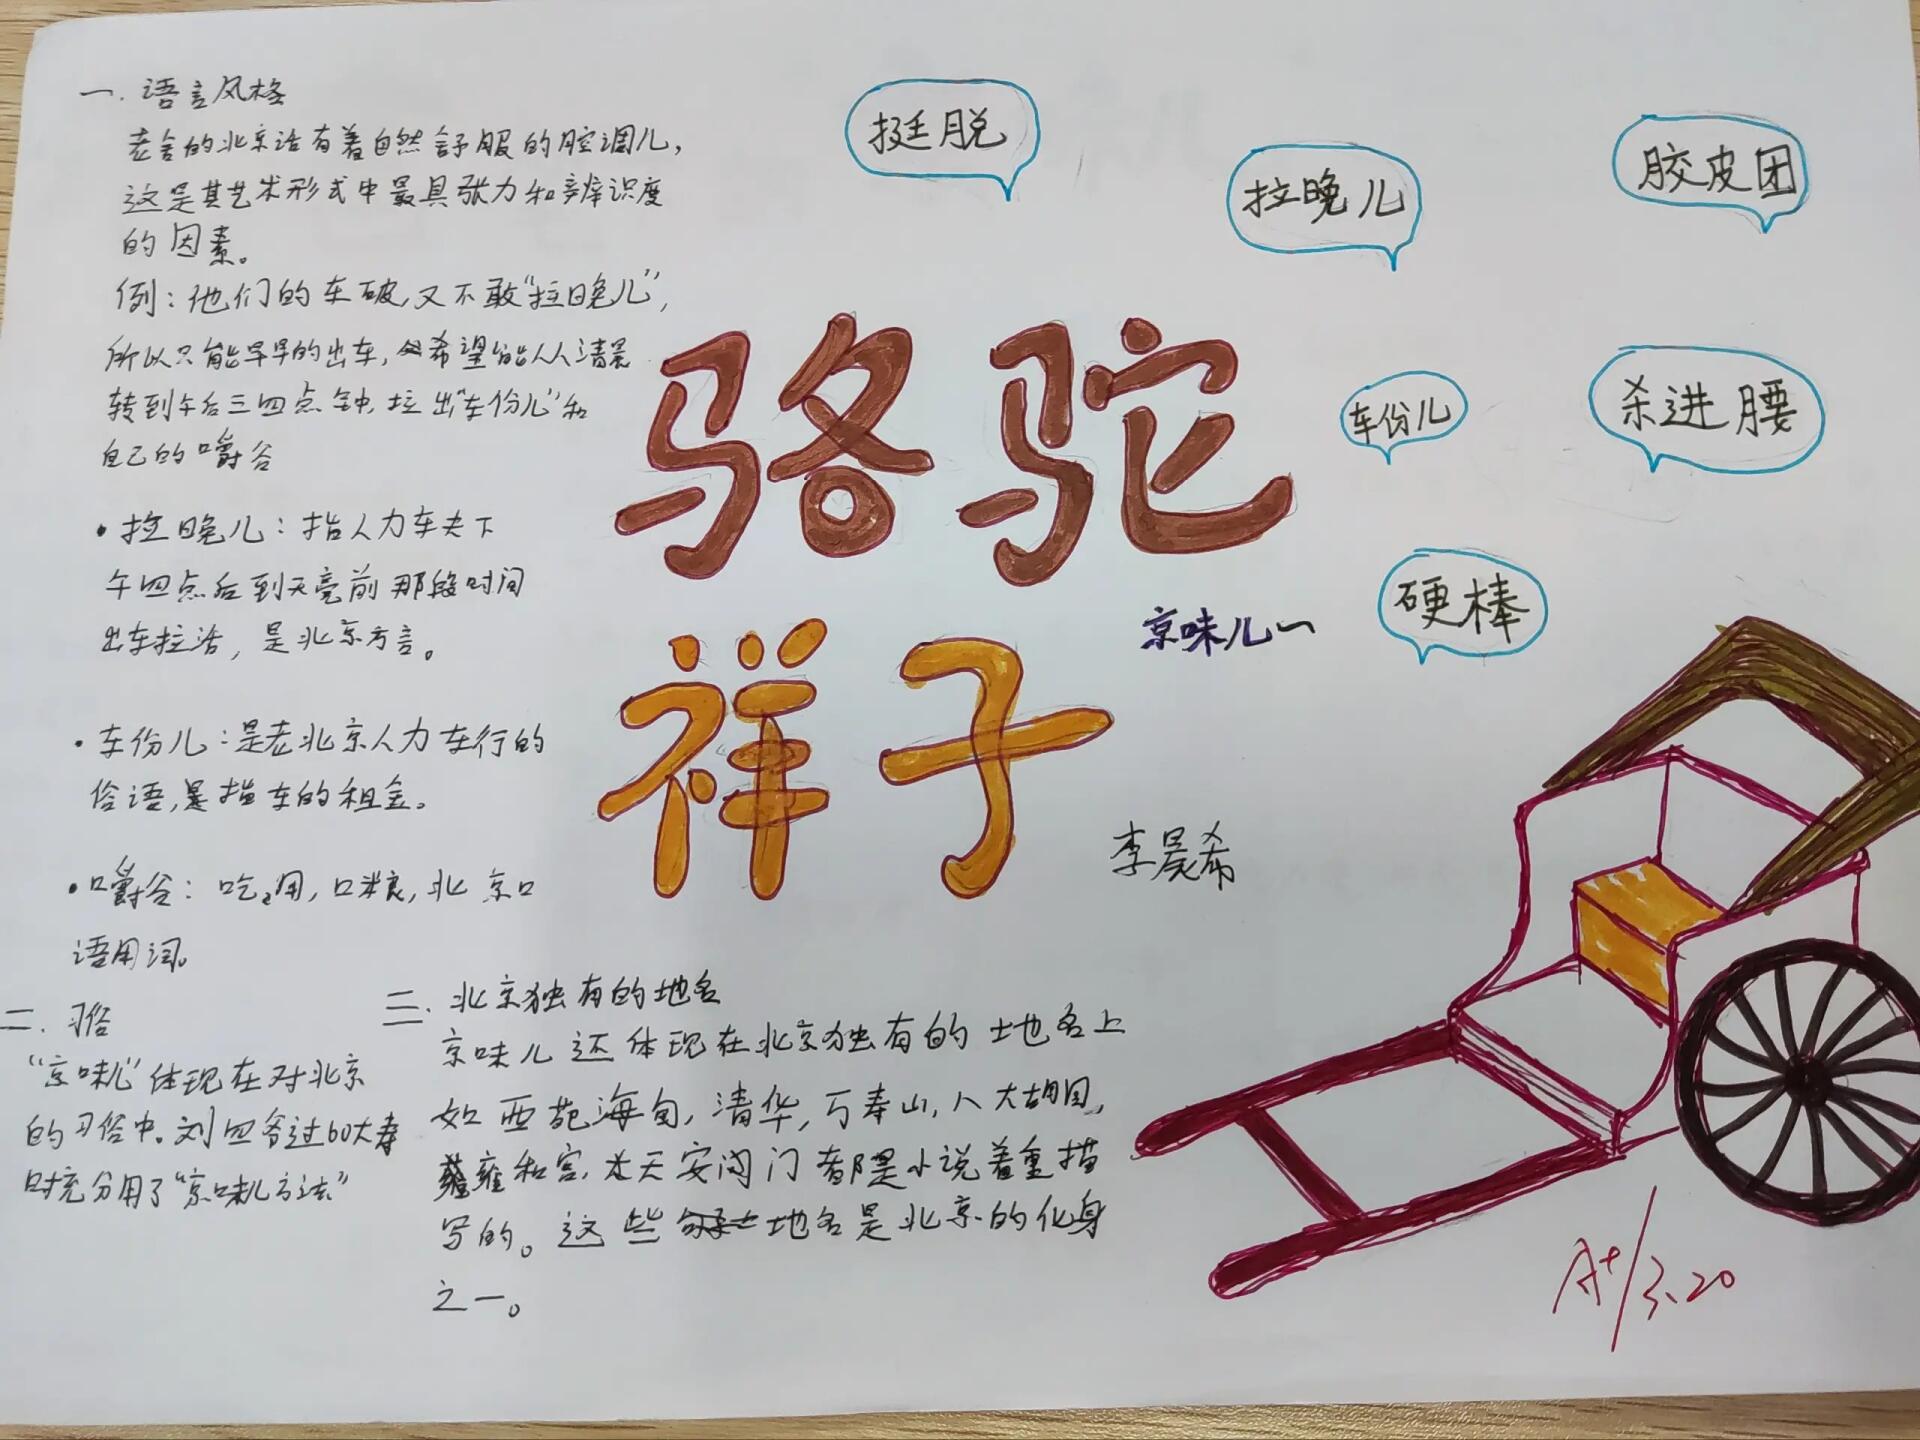 一. 语言风格
老舍的北京话有着自然舒服的腔调儿，
这是其艺术形式中最具张力和辨识度
的因素。
例：他们的车破，又不敢“拉晚儿”，
所以只能早早的出车，希望能从清晨
转到午后三四点钟，拉出“车份儿”和
自己的嚼谷
·拉晚儿：指人力车夫下
午四点后到天亮前那段时间
出车拉活，是北京方言。
·车份儿：是老北京人力车行的
俗语，是指车的租金。
·嚼谷：吃用，口粮，北京口
语用词。
二. 习俗
“京味儿”体现在对北京
的习俗中。刘四爷过60大寿
时充分用了“京味儿方法”
三. 北京独有的地名
京味儿还体现在北京独有的地名上
如西苑海甸，清华，万寿山，人大胡同，
雍和宫，天安门都是小说着重描
写的。这些地名是北京的化身
之一。
挺脱
拉晚儿
胶皮团
车份儿
杀进腰
硬棒
骆驼
祥子
京味儿一
李晨希
A+/3.20